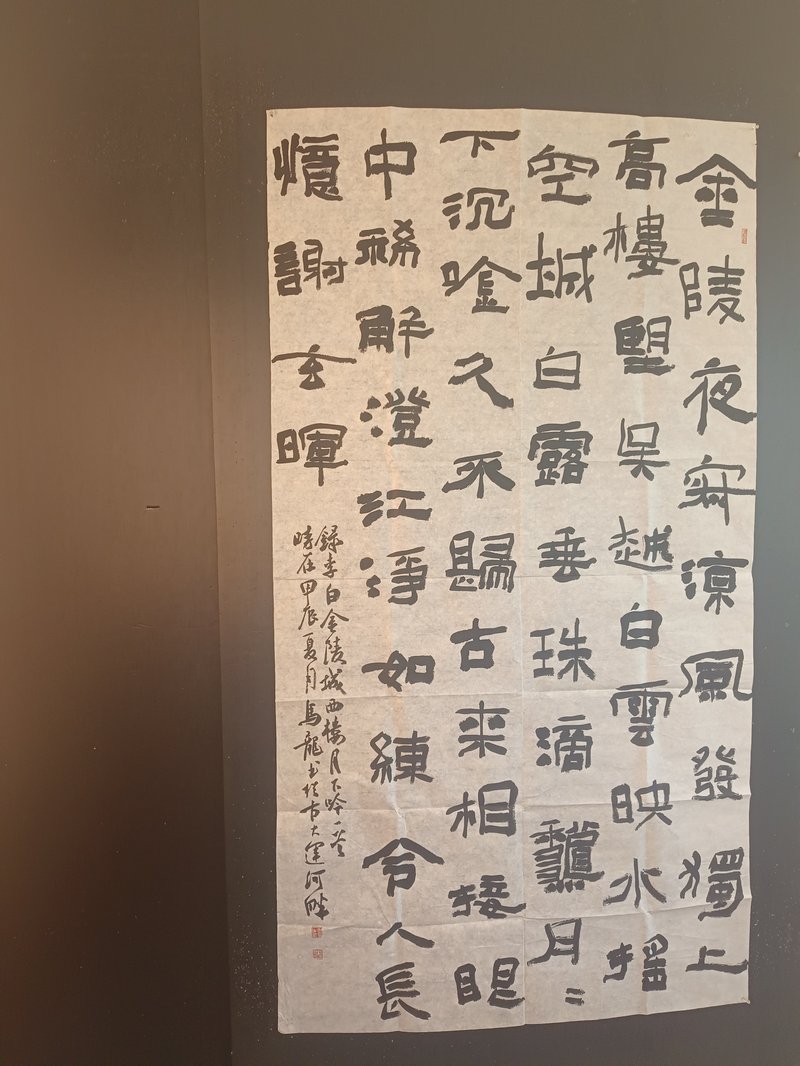 金陵夜寂涼風發獨上
高樓望吳越白雲映水摇
空城白露垂珠滴龝月〻
下沉唫久不歸古来相接眼
中稀解澄江淨如練令人長
憶謝玄暉
録李白金陵城西樓月下吟一首
時在甲辰夏月馬龍书於古大運河畔